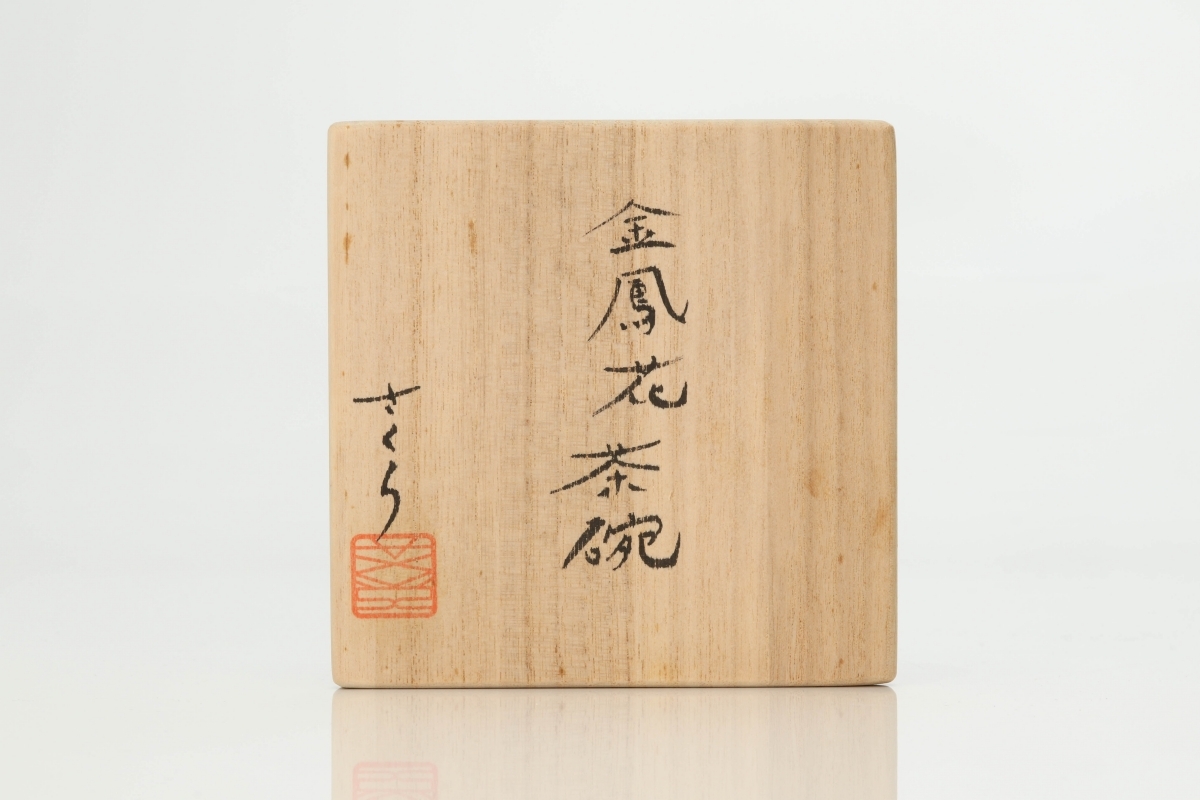 金鳳花茶碗
さくら